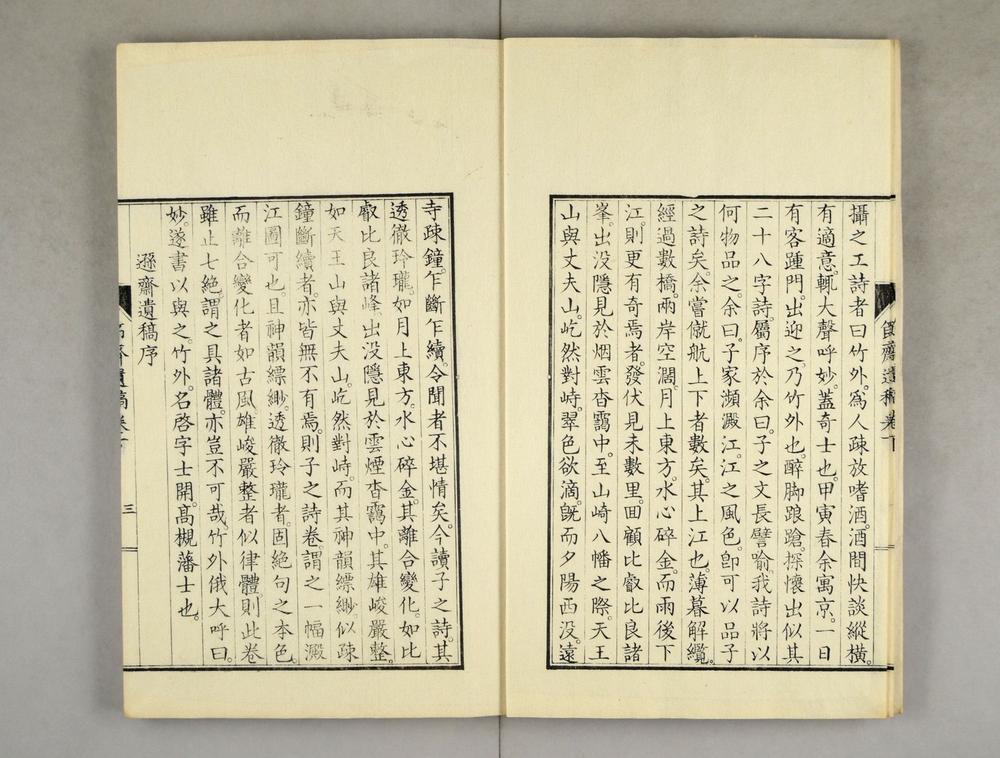 攝之工詩者曰竹外。爲人疎放嗜酒。酒間快談縱橫。
有適意。輒大聲呼妙。蓋奇士也。甲寅春余寓京。一日
有客踵門。出迎之。乃竹外也。醉脚踉蹌。探懷出似其
二十八字詩。屬序於余曰。子之文長譬喻。我詩將以
何物品之。余曰。子家瀕澱江。江之風色。卽可以品子
之詩矣。余嘗僦航上下者數矣。其上江也。薄暮解纜。
經過數橋。兩岸空濶。月上東方。水心碎金。而兩後下
江。則更有奇焉者。發伏見未數里。回顧比叡比良諸
峯。出没隱見於烟雲杳靄中。至山崎八幡之際。天王
山與丈夫山。屹然對峙。翠色欲滴。旣而夕陽西没。遠
寺疎鐘。乍斷乍續。令聞者不堪情矣。今讀子之詩。其
透徹玲瓏。如月上東方。水心碎金。其離合變化。如比
叡比良諸峰。出没隱見於雲煙杳靄中。其雄峻嚴整。
如天王山與丈夫山。屹然對峙。而其神韻縹緲。似疎
鐘斷續者。亦皆無不有焉。則子之詩卷。謂之一幅澱
江圖可也。且神韻縹緲。透徹玲瓏者。固絕句之本色。
而離合變化者如古風。雄峻嚴整者似律體。則此卷
雖止七絕。謂之具諸體。亦豈不可哉。竹外俄大呼曰。
妙。遂書以與之。竹外。名啓字士開。高槻藩士也。
遜齋遺稿序
三